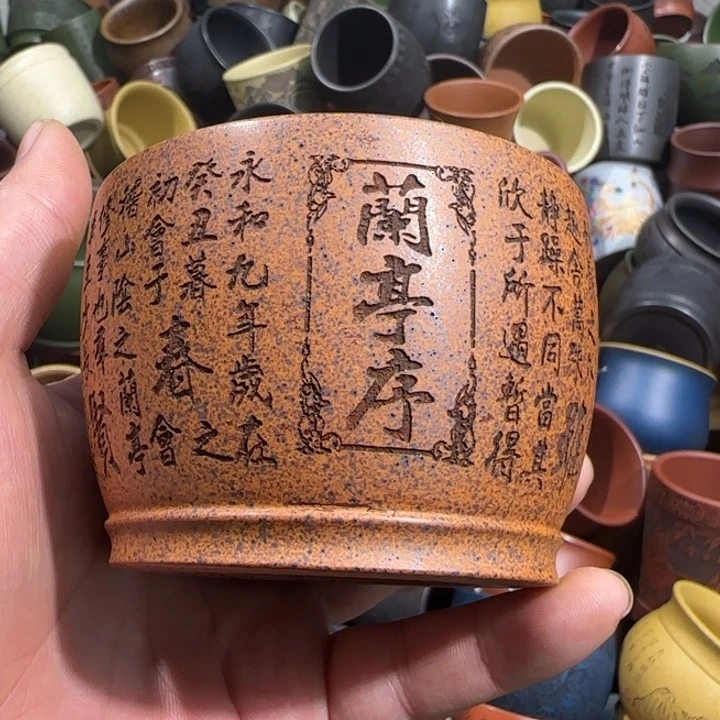 蘭亭序
永和九年歲在
癸丑暮春之
初會于會
稽山陰之蘭亭
事也群賢
趣舍萬殊
靜躁不同當其
欣于所遇暫得